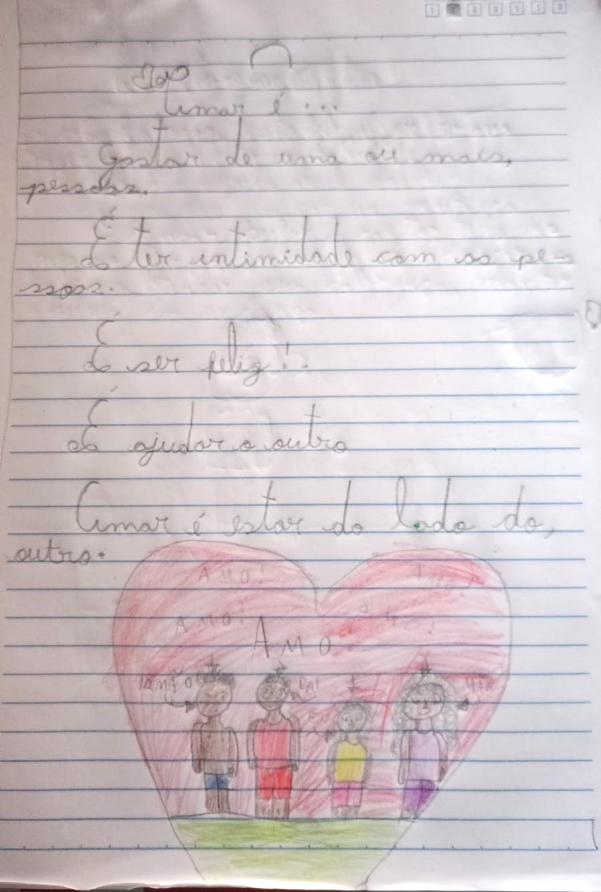 Amar é...
Gostar de uma ou mais,
pessoas.
É ter intimidade com as pe-
ssoas.
É ser feliz!
É ajudar o outro
Amar é estar do lado do,
outro.
AMO!
AMO!
AMO
IRMÃO
PAI
EU
MÃE